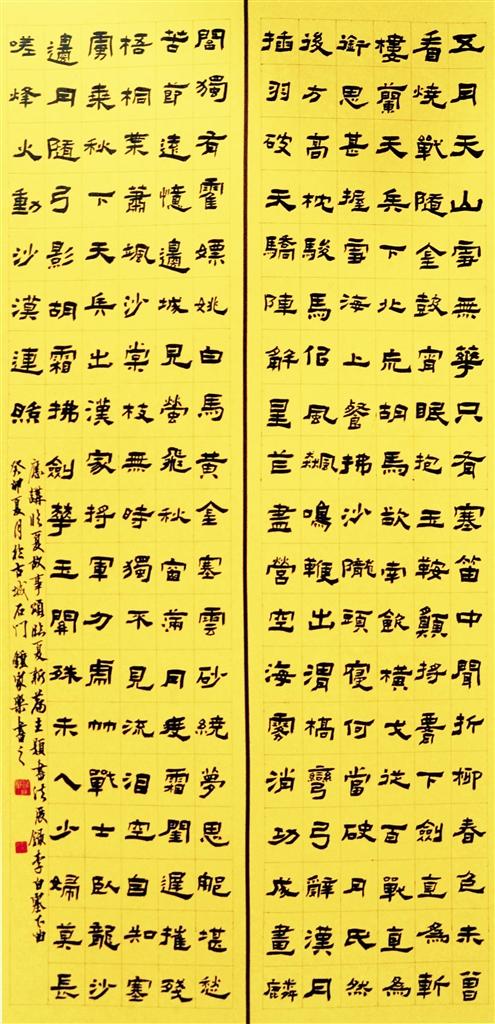 五月天山雪無華只有塞笛中聞折柳春色未曾
看曉戰隨金鼓宵眠抱玉鞍願將腰下劍直為斬
樓蘭天兵下北荒胡馬欲南飲橫戈從百戰直為
銜恩甚握雪海上餐拂沙隴頭寢何當破月氏然
後方高枕駿馬似風飆鳴鞭出渭橋彎弓辭漢月
插羽破天驕陣解星芒盡營空海霧消功成畫麟
閣獨有霍嫖姚白馬黃金塞雲砂繞夢思那堪愁
苦節遠憶邊城兒螢飛秋窗滿月度霜閨遲摧殘
梧桐葉蕭颯沙棠枝無時獨不見流淚空自知塞
虜乘秋下天兵出漢家將軍分虎竹戰士臥龍沙
邊月隨弓影胡霜拂劍華玉關殊未入少婦莫長
嗟烽火動沙漠連照
應講臨夏故事頌臨夏新篇主題書法展錄李白塞下曲
癸卯夏月於古城石門鍾家樂書之